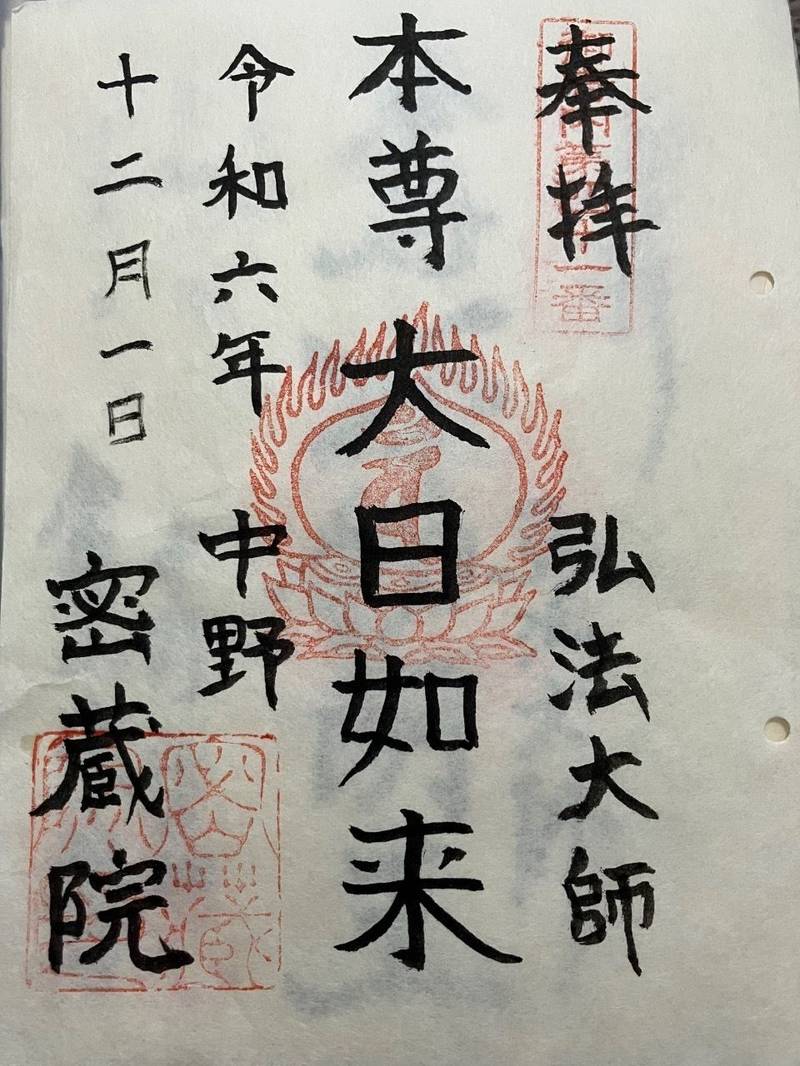 奉拝 弘法大師
本尊 大日如来
令和六年 中野
十二月一日
密蔵院